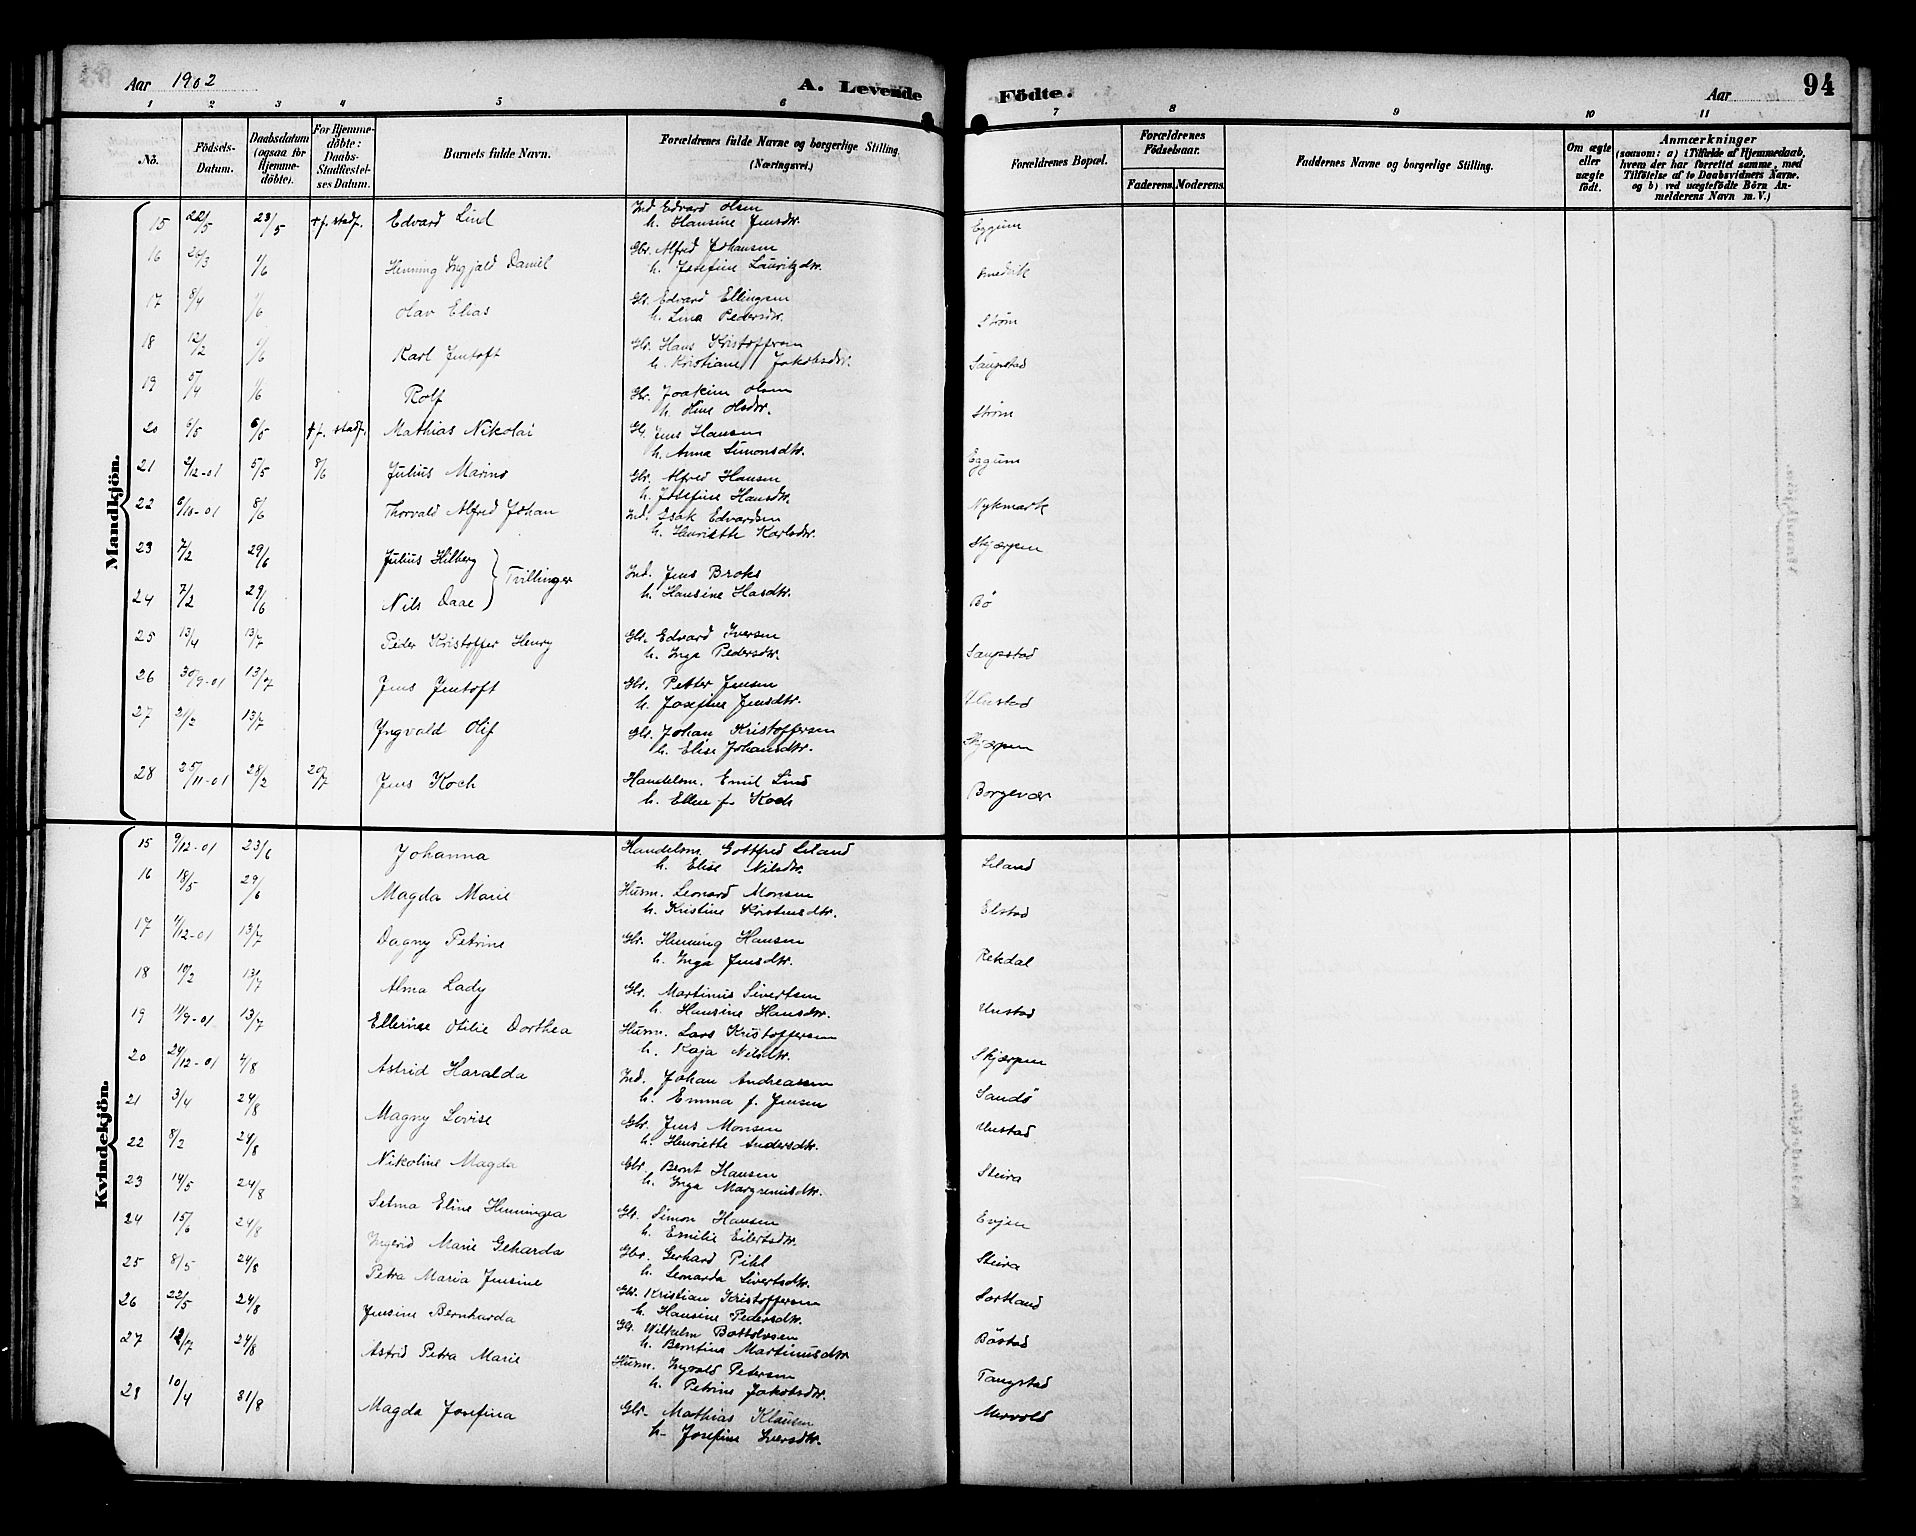 Aar 1902 A. Levende Födte. Aar 94
1 2 3 4 5 6 7 8 9 10 11
No. Födsels-Datum. Daabsdatum (ogsaa for Hjemme-döbte). For Hjemme-döbte: Daabs-Stadfæstelses Datum. Barnets fulde Navn. Forældrenes fulde Navne og borgerlige Stilling. (Næringsvei.) Forældrenes Bopæl. Forældrenes Födselsaar. Faderens. Moderens. Faddernes Navne og borgerlige Stilling. Om ægte eller uægte födt. Anmærkninger (saasom: a) i Tilfælde af Hjemmedaab, hvem der har forrettet samme, med Tilföielse af to Daabsvidners Navne. og b) ved uægtefödte Börn Anmelderens Navn m. V.)
Mandkjön.
15 22/5 23/5 † f. stadf. Edvard Lind Ind Edvard Olsen
h. Hansine Jensdtr. Eggum
16 26/3 1/6 Henning Ingjald Daniel Gbr. Alfred Johansen
h. Josefine Lauritzdtr.
17 8/4 1/6 Olav Elias Gbr. Edvard Ellingsen
h. Lina Pedersdtr. Ström
18 12/2 1/6 Karl Jentoft Gbr. Hans Kristoffersen
h. Kristiane Jakobsdtr. Saupstad
19 5/4 1/6 Rolf Gbr. Joakim Olsen
h. Oline Olsdtr. Ström
20 6/5 6/5 † f. stadf. Mathias Nikolai Gbr. Jens Hansen
h. Anna Simonsdtr. Eggum
21 2/12-01 5/5 8/6 Julius Marino Gbr. Alfred Hansen
h. Josefine Hansdtr. Nykmark
22 6/10-01 8/6 Thorvald Alfred Johan Ind. Isak Edvardsen
h. Henriette Karlsdtr. Skjærpen
23 7/2 29/6 Julius Hilberg } Tvillinger Ind. Jens Broks
24 7/2 29/6 Nils Daae h. Hansine Hasdtr. Bö
25 13/4 13/7 Peder Kristoffer Henry Gbr. Edvard Iversen
h. Inga Pedersdtr. Saupstad
26 30/9-01 13/7 Jens Jentoft Gbr. Petter Jensen
h. Josefine Jensdtr. Unstad
27 21/2 13/7 Yngvald Olif Gbr. Johan Kristoffersen
h. Elise Johansdtr. Skjærpen
28 25/11-01 28/2 20/7 Jens Koch Handelsm. Emil Lind
h. Ellen f. Koch Borgevær
Kvindekjön.
15 9/12-01 23/6 Johanna Handelsm. Gottfred Liland
h. Elise Nilsdtr. Liland
16 18/5 29/6 Magda Marie Husm. Leonard Monsen
h. Kristine Kristensdtr. Elstad
17 4/12-01 13/7 Dagny Petrine Gbr. Henning Hansen
h. Inga Jensdtr. Rekdal
18 10/2 13/7 Alma Lady Gbr. Martinus Sivertsen
h. Hansine Hansdtr. Unstad
19 11/9-01 13/7 Ellernese Otilie Dorthea Husm. Lars Kristoffersen
h. Kaja Nilsdtr. Skjærpen
20 24/12-01 4/8 Astrid Haralda Ind. Johan Andreassen
h. Emma f. Jensen Sandö
21 3/4 24/8 Magny Lovise Gbr. Jens Monsen
h. Henriette Andersdtr. Unstad
22 8/2 24/8 Nikoline Magda Gbr. Bernt Hansen
h. Inga Margrenusdtr. Steira
23 14/5 24/8 Selma Eline Henningea Gbr. Simon Hansen
h. Emilie Eilertsdtr. Evjen
24 15/6 24/8 Ingerid Marie Geharda Gbr. Gerhard Pihl
h. Leonarda Sivertsdtr. Steira
25 8/5 24/8 Petra Maria Jensine Gbr. Kristian Kristoffersen
h. Hansine Pedersdtr. Sortland
26 22/5 24/8 Jensine Bernharda Gbr. Wilhelm Bottolvsen
h. Berntine Martinusdtr. Böstad
27 12/7 24/8 Astrid Petra Marie Husm. Ingvald Petersen
h. Petrine Jakobsdtr. Tangstad
28 10/4 31/8 Magda Josefina Gbr. Mathias Klausen
h. Josefine Iversdtr. Mervold